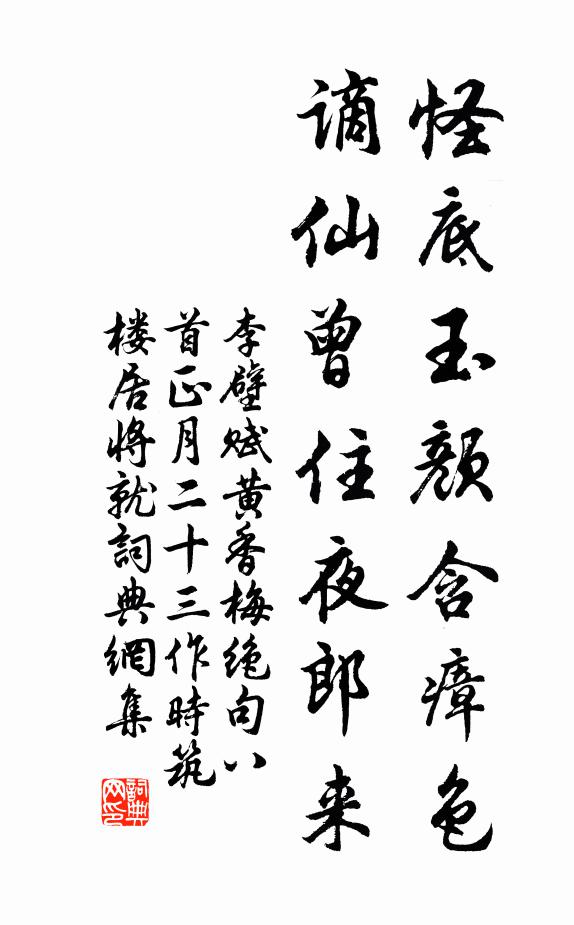 怪底玉颜含瘴色
谪仙曾住夜郎来
李壁赋黄香梅绝句八
首正月二十三作時筑
楼居将就詞典網集
詞典
网印